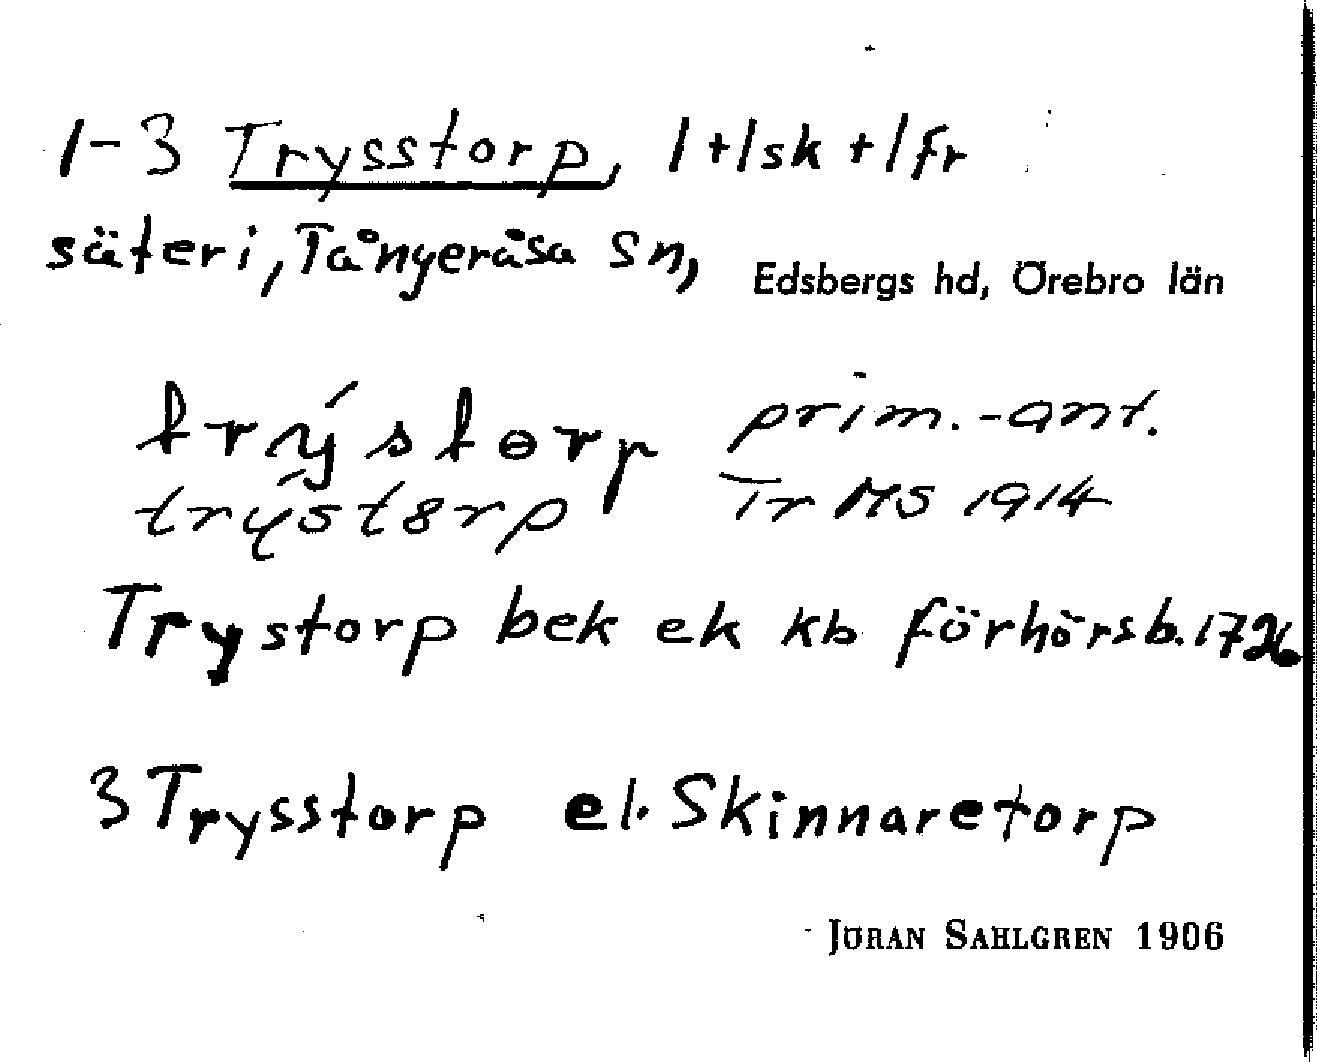 1-3 Trysstorp, 1 +/sk +/fr
säteri, Tångeråsa Sn, Edsbergs hd, Örebro län
trýstɵrp prim.-ant.
trýst8rp Tr MS 1914
Trystorp bek ek kb förhörsb. 1726
3 Trysstorp el. Skinnaretorp
JÖRAN SAHLGREN 1906